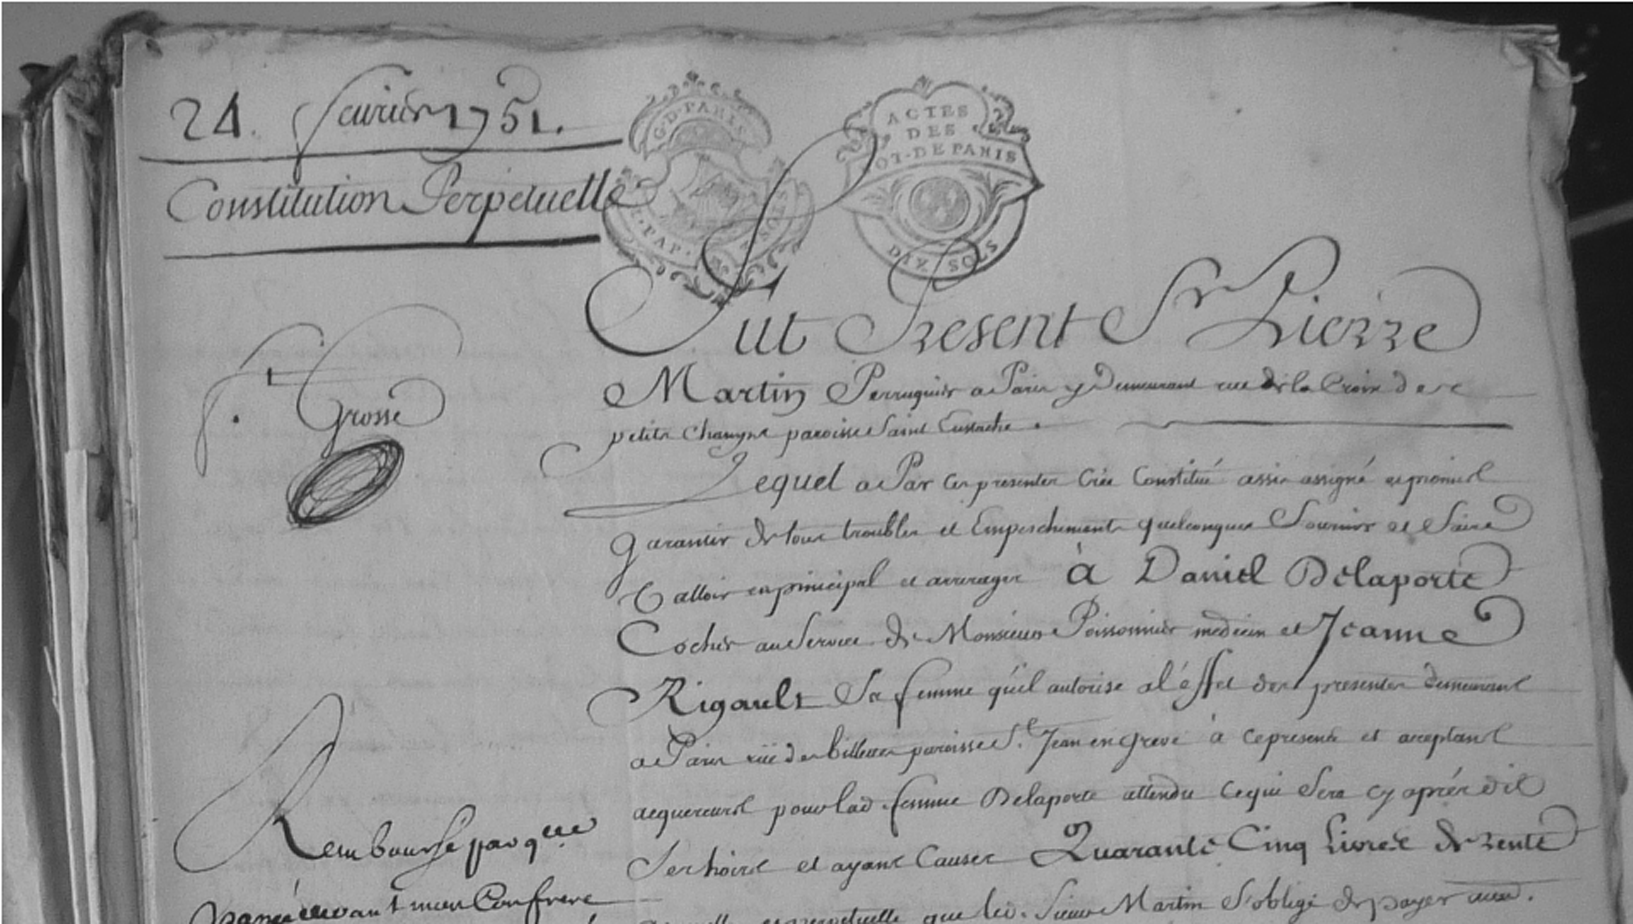 24. fevrier 1751.
Constitution Perpetuelle
G. D. PARIS
ACTES
DES
NOT. DE PARIS
DIX SOLS
Fut Present Sr Pierre
Martin Perruquier a Paris y demeurant rue de la Croix des
petits Champs paroisse Saint Eustache.
f. Grosse
Lequel a Par ces presentes Créé Constitué assis assigné et promis
garantir de tous troubles et Empeschements quelconques Fournir et faire
Valloir en principal et arrerages à Daniel Delaporte
Cocher au Service de Monsieur Poissonnier medecin et Jeanne
Rigault Sa femme qu'il autorise a l'éffet des presentes demeurant
a Paris rüe des billettes paroisse St. Jean en Greve à ce presents et acceptant
acquereurs pour lad. femme Delaporte attendu ce qui Sera cy aprés dit
Ses hoirs et ayans Causes Quarante Cinq Livres de rente
Remboursé par qce
passée devant mon Confrere
annuelle et perpetuelle que led. Sieur Martin S'oblige de payer aud.